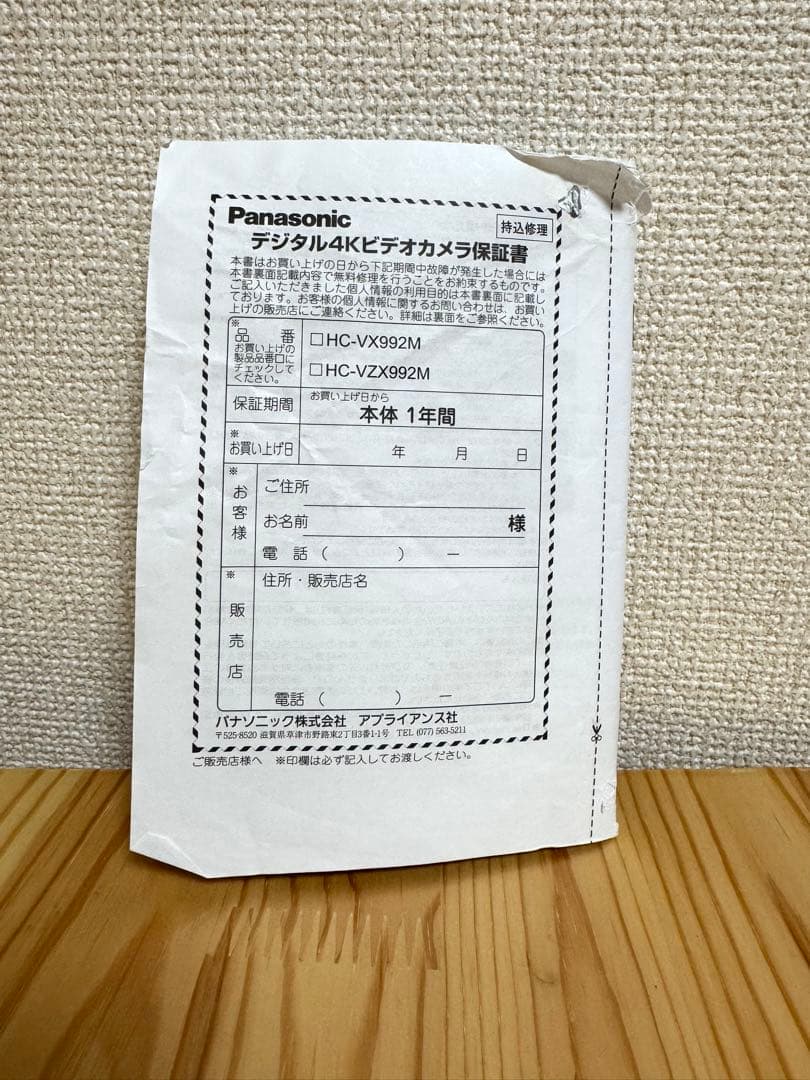 Panasonic
持込修理
デジタル4Kビデオカメラ保証書
本書はお買い上げの日から下記期間中故障が発生した場合には
本書裏面記載内容で無料修理を行うことをお約束するものです。
ご記入いただきました個人情報の利用目的は本書裏面に記載し
ております。お客様の個人情報に関するお問い合わせは、お買い
上げの販売店にご連絡ください。詳細は裏面をご参照ください。
※
品 番
お買い上げの
製品品番口に
チェックして
ください。
□HC-VX992M
□HC-VZX992M
保証期間
お買い上げ日から
本体 1年間
※
お買い上げ日
年 月 日
※
お客様
ご住所
お名前 様
電 話 ( ) ー
※
販売店
住所・販売店名
電話 ( ) ー
パナソニック株式会社 アプライアンス社
〒525-8520 滋賀県草津市野路東2丁目3番1-1号 TEL (077) 563-5211
ご販売店様へ ※印欄は必ず記入してお渡しください。